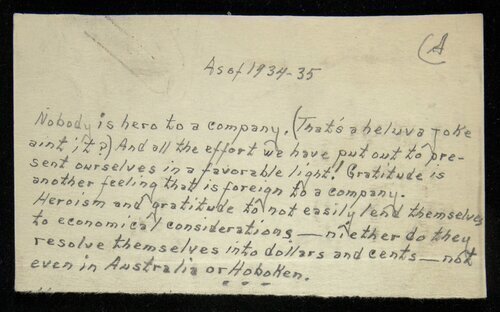 (A
As of 1934-35
Nobody is hero to a company. (That's a heluva joke
aint it?) And all the effort we have put out to pre-
sent ourselves in a favorable light! Gratitude is
another feeling that is foreign to a company.
Heroism and gratitude to not easily lend themselves
to economical considerations — niether do they
resolve themselves into dollars and cents — not
even in Australia or Hoboken.